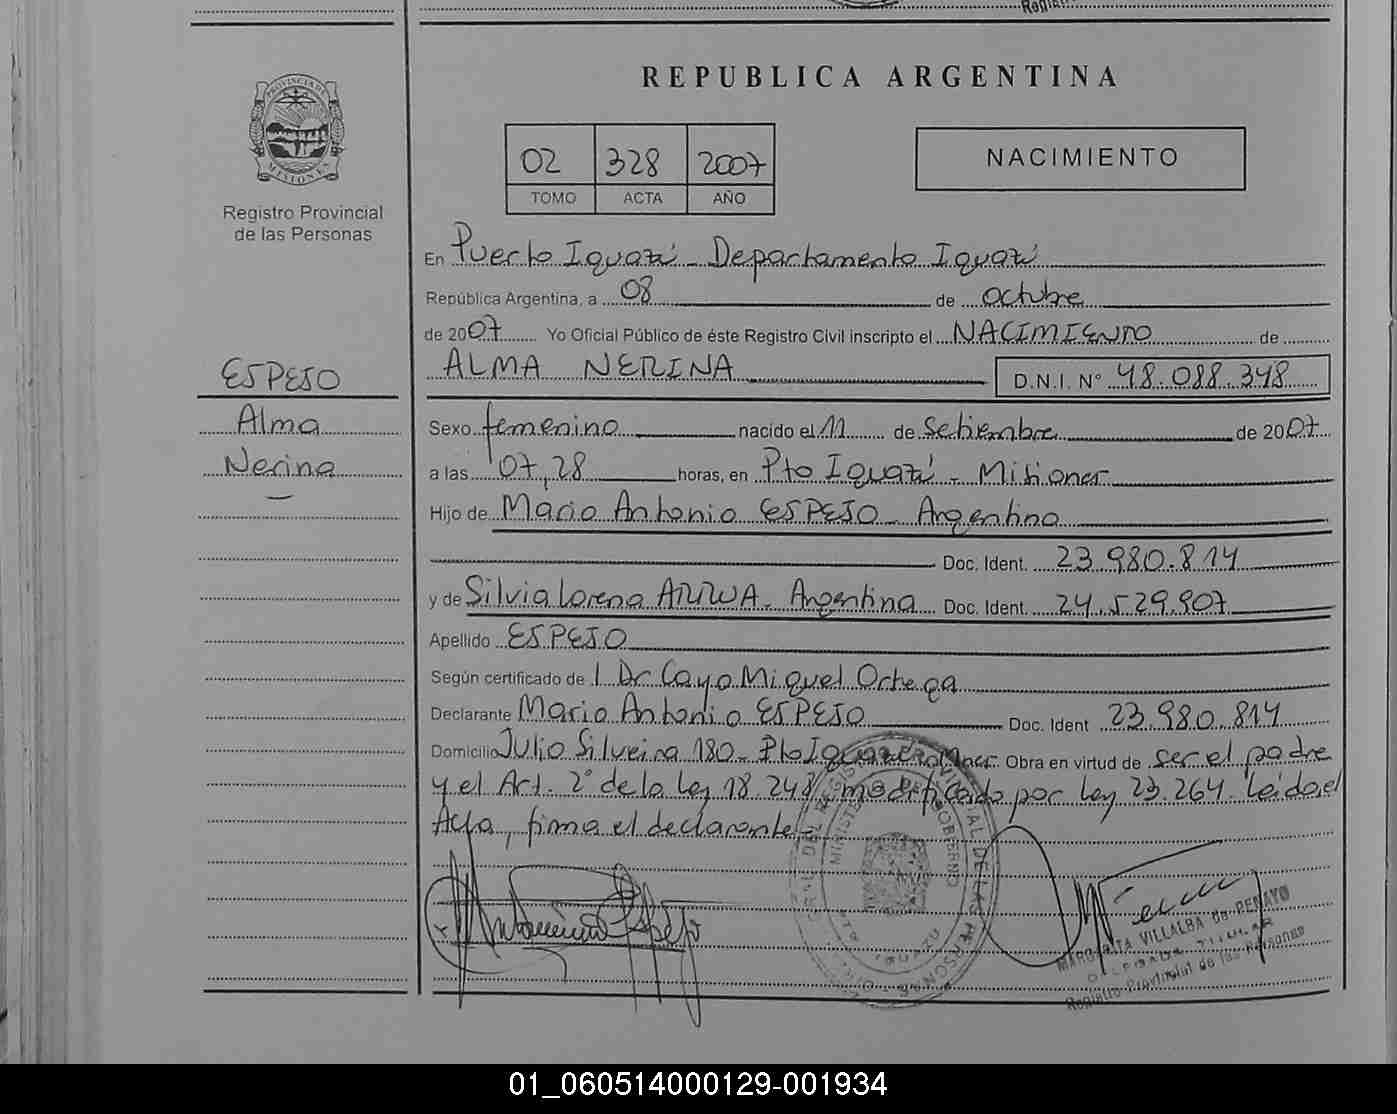 REPUBLICA ARGENTINA
PROVINCIA DE MISIONES
Registro Provincial
de las Personas
02 328 2007
TOMO ACTA AÑO
NACIMIENTO
En Puerto Iguazú - Departamento Iguazú
República Argentina, a 08 de Octubre
de 2007 Yo Oficial Público de éste Registro Civil inscripto el NACIMIENTO de
ALMA NERINA D.N.I. N° 48.088.348
ESPEJO
Alma
Nerina
Sexo femenino nacido el 11 de Setiembre de 2007
a las 07,28 horas, en Pto Iguazú - Misiones
Hijo de Mario Antonio ESPEJO - Argentino
Doc. Ident. 23.980.814
y de Silvia Lorena Argentina Doc. Ident. 24.529.907
Apellido ESPEJO
Según certificado de l Dr Cayo Miguel Ortega
Declarante Mario Antonio ESPEJO Doc. Ident 23.980.814
Domicilio Julio Silveira 180 - Pto Iguazú Mnes Obra en virtud de ser el padre
y el Art. 2° de la Ley 18.248 modificado por Ley 23.264. Leída el
Acta, firma el declarante -
MARGARITA VILLALBA de PENAYO
DELEGADA TITULAR
Registro Provincial de las Personas
01_060514000129-001934